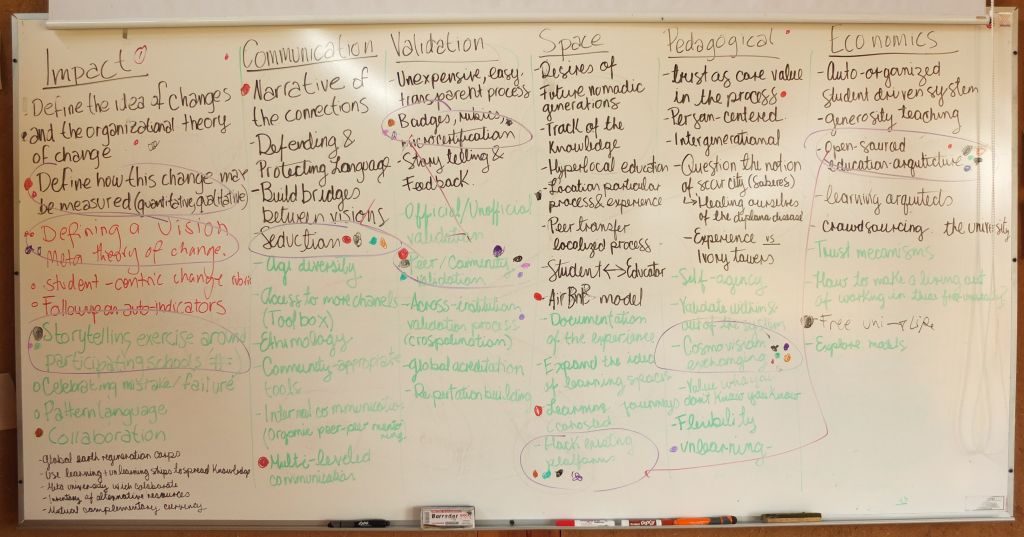 Impact
Define the idea of changes
and the organizational theory
of change
Define how this change may
be measured (quantitative, qualitative)
Defining a Vision
Meta theory of change.
student-centric change
Follow up on auto-indicators
Storytelling exercise around
participating schools
Celebrating mistake/failure
Pattern language
Collaboration
- Global earth regeneration corps
- Use learning + unlearning ships to spread knowledge
- Meta university wich colaborate
- Inventory of alternative resources
- Mutual complementary currency
Communication
Narrative of
the connections
- Defending &
Protecting Language
- Build bridges
between visions
Seduction
- Age diversity
- Access to more channels
(Toolbox)
- Ethnology
- Community-appropriate
tools
- Internal communication
(Organic peer-peer mentoring
Multi-leveled
communication
Validation
- Unexpensive, easy,
transparent process
- Badges, rubrics,
microcertification
- Story telling &
Feedback
- Official/Unofficial
validation
- Peer/Community
validation
- Across-institution
validation process
(crospolination)
- global acreditation
- Reputation building
Space
- Desires of
Future nomadic
generations
- Track of the
Knowledge
- Hyperlocal education
- Location particular
process & experience
- Peer transfer
localized process
- Student <-> Educator
- AirBnB model
- Documentation
of the experience
- Expand the idea
of learning spaces
- Learning journeys
- Hack existing
platforms
Pedagogical
- trust as core value
in the process
- Person-centered
- Intergenerational
- Question the notion
of scarcity (Saberes)
Healing ourselves
of the diploma disease
- Experience vs
Ivory towers
- Self-agency
- Validate within &
out of the system
- Cosmo vision
exchanging
- Value what you
don't know you know
- Flexibility
- unlearning -
Economics
- Auto-organized
student driven system
- generosity teaching
- Open-sourced
education-arquitecture
- learning arquitects
- crowdsourcing the university
- Trust mecanisms
- How to make a living out
of working in this
- Free uni → Life
- Explore
Borrador
EXPO